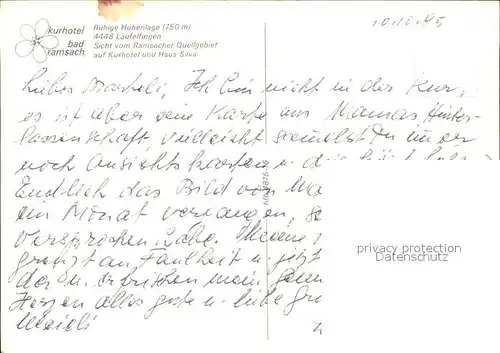 kurhotel
bad
ramsach
Ruhige Höhenlage (750 m)
4448 Läufelfingen
Sicht vom Ramsacher Quellgebiet
auf Kurhotel und Haus Silva
10.10.95
Liebes Marteli, Ich bin nicht in der Kur,
es ist aber eine Karte aus Mamas Hinter-
lassenschaft, vielleicht sammelst Du immer
noch Ansichtskarten u.
Endlich das Bild von Ma
ein Monat vergangen, se
versprochen habe. Meine
grenzt an Faulheit u. jetzt
der u. erfrischen mein
Herzen alles gute u. liebe Gr
Meieli
privacy protection
Datenschutz